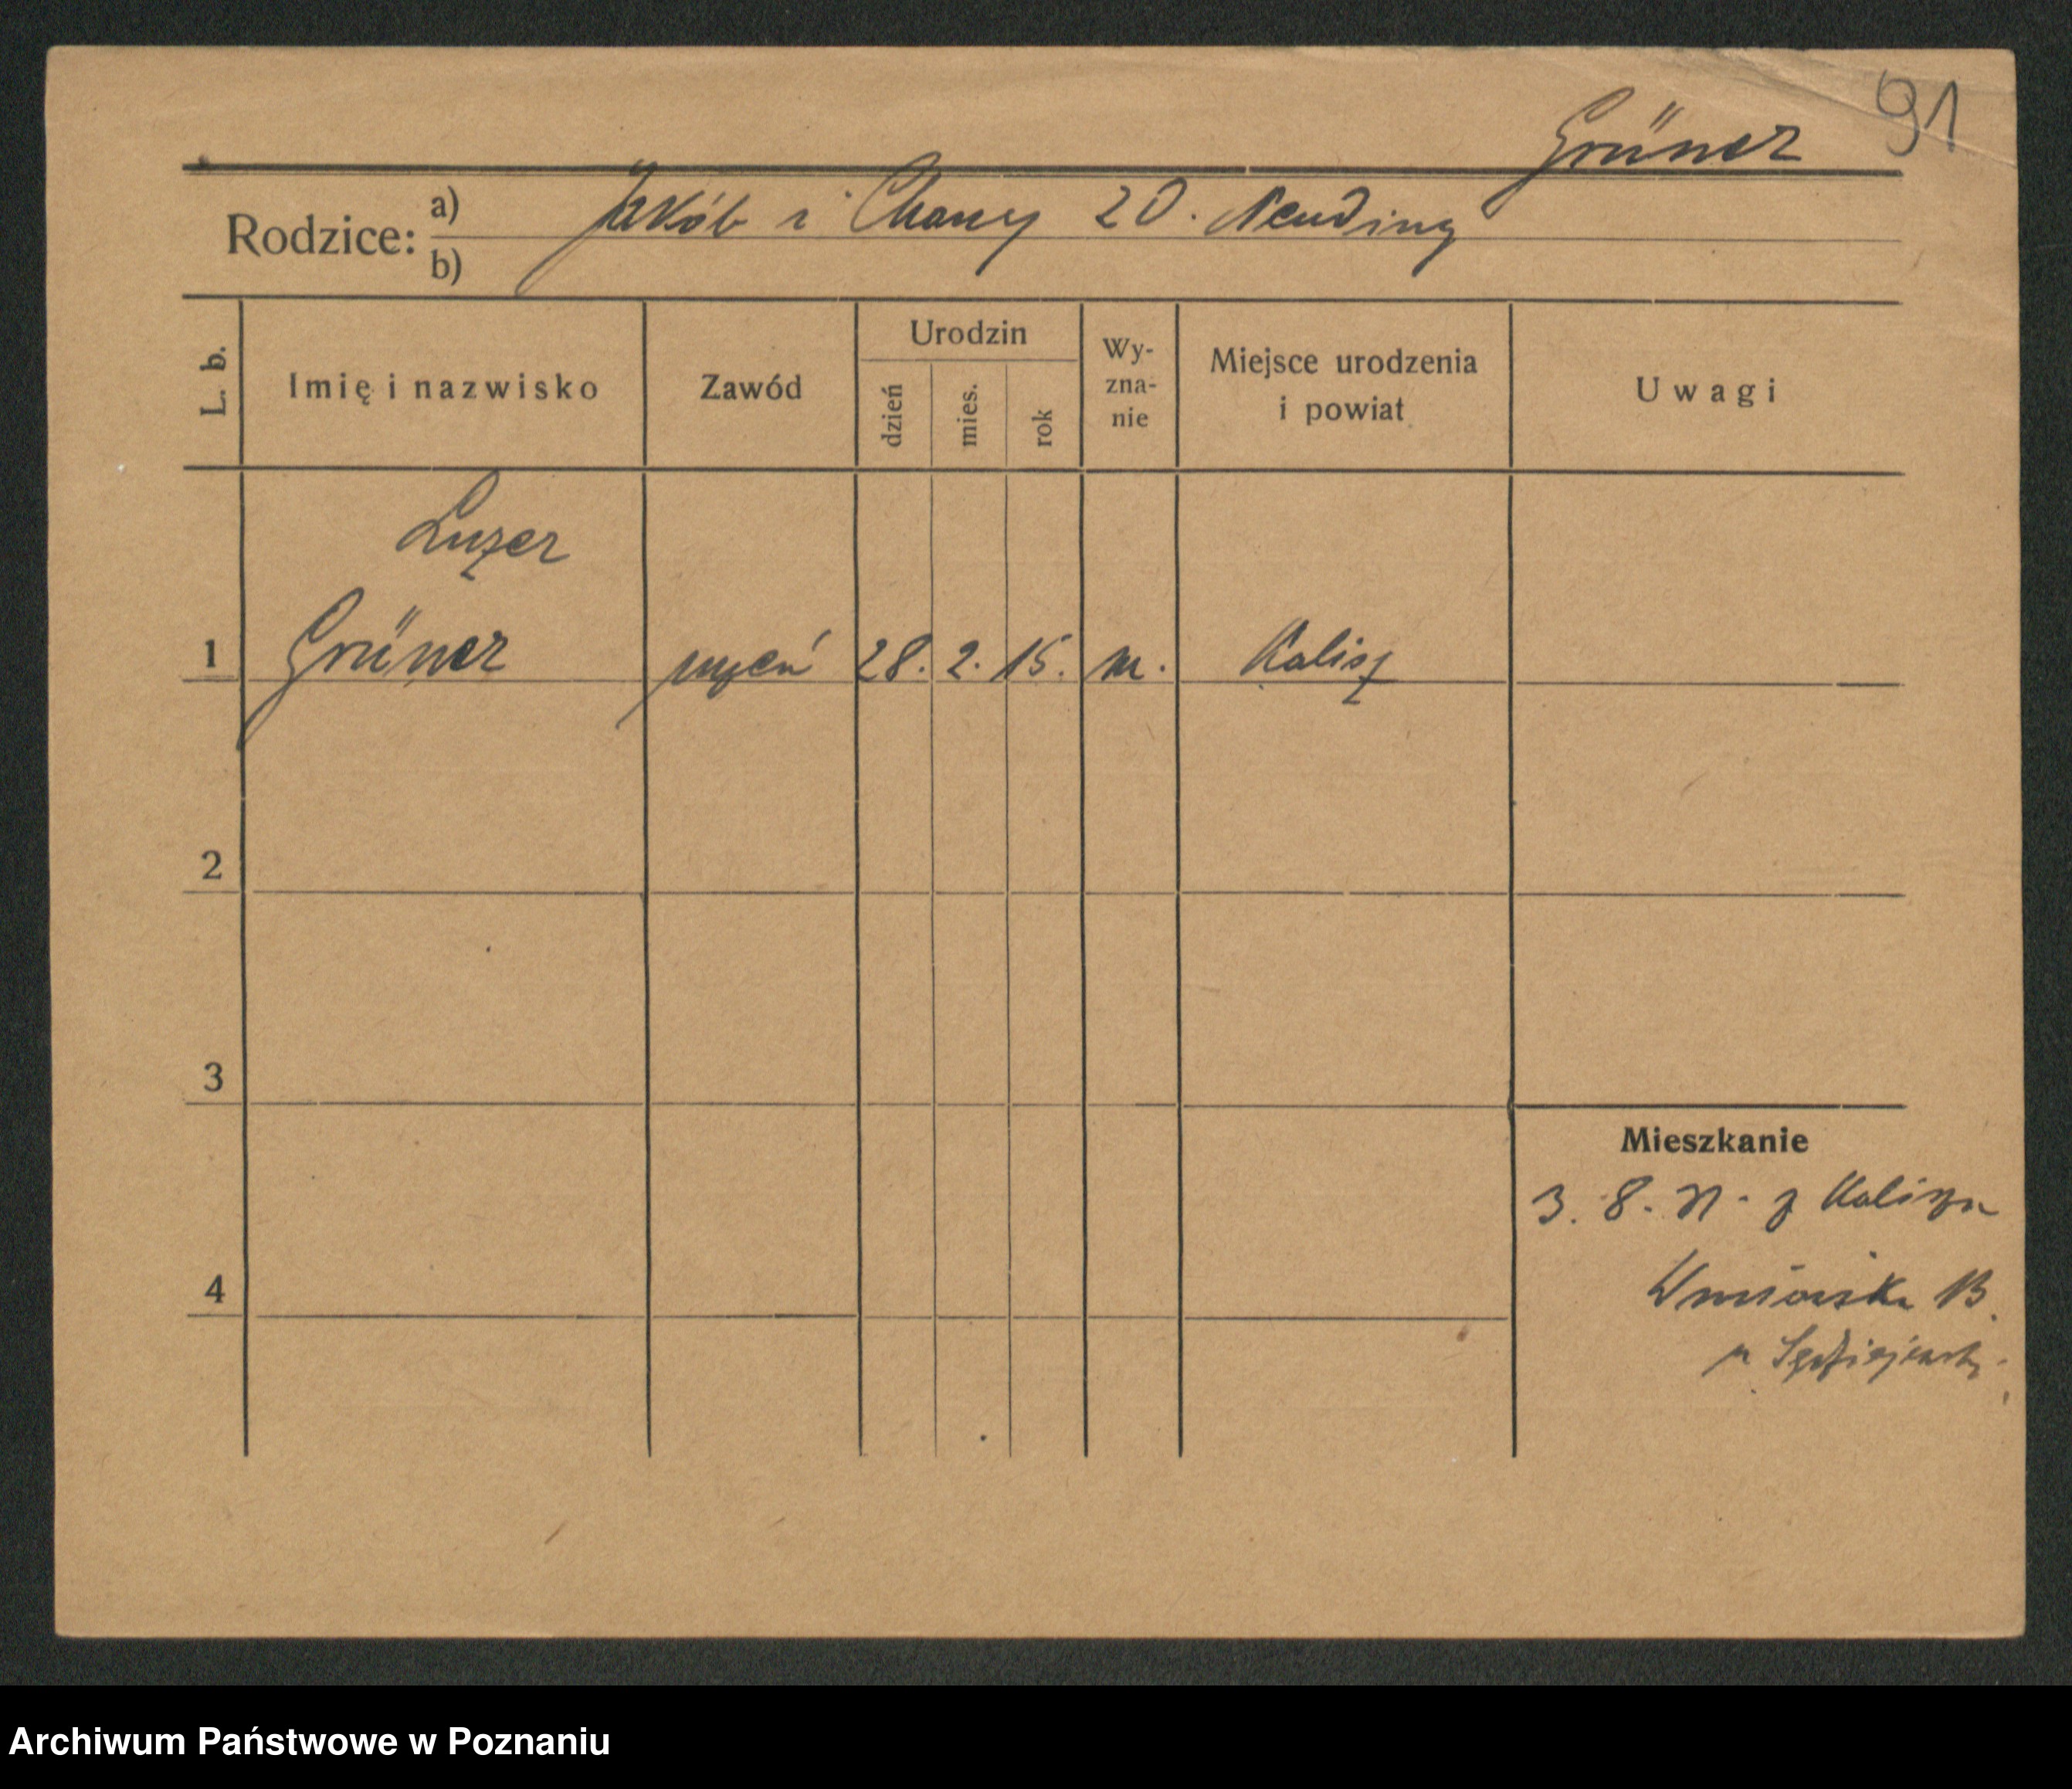 91
Grüner
Rodzice: a) Jakób i Chany zd. Neuding
b)
L. b. Imię i nazwisko Zawód Urodzin dzień mies. rok Wyznanie Miejsce urodzenia i powiat Uwagi
Luzer
1 Grüner uczeń 28. 2. 15. m. Kalisz
2
3
Mieszkanie
3. 8. 31. z Kalisza
4
13.
u
Archiwum Państwowe w Poznaniu